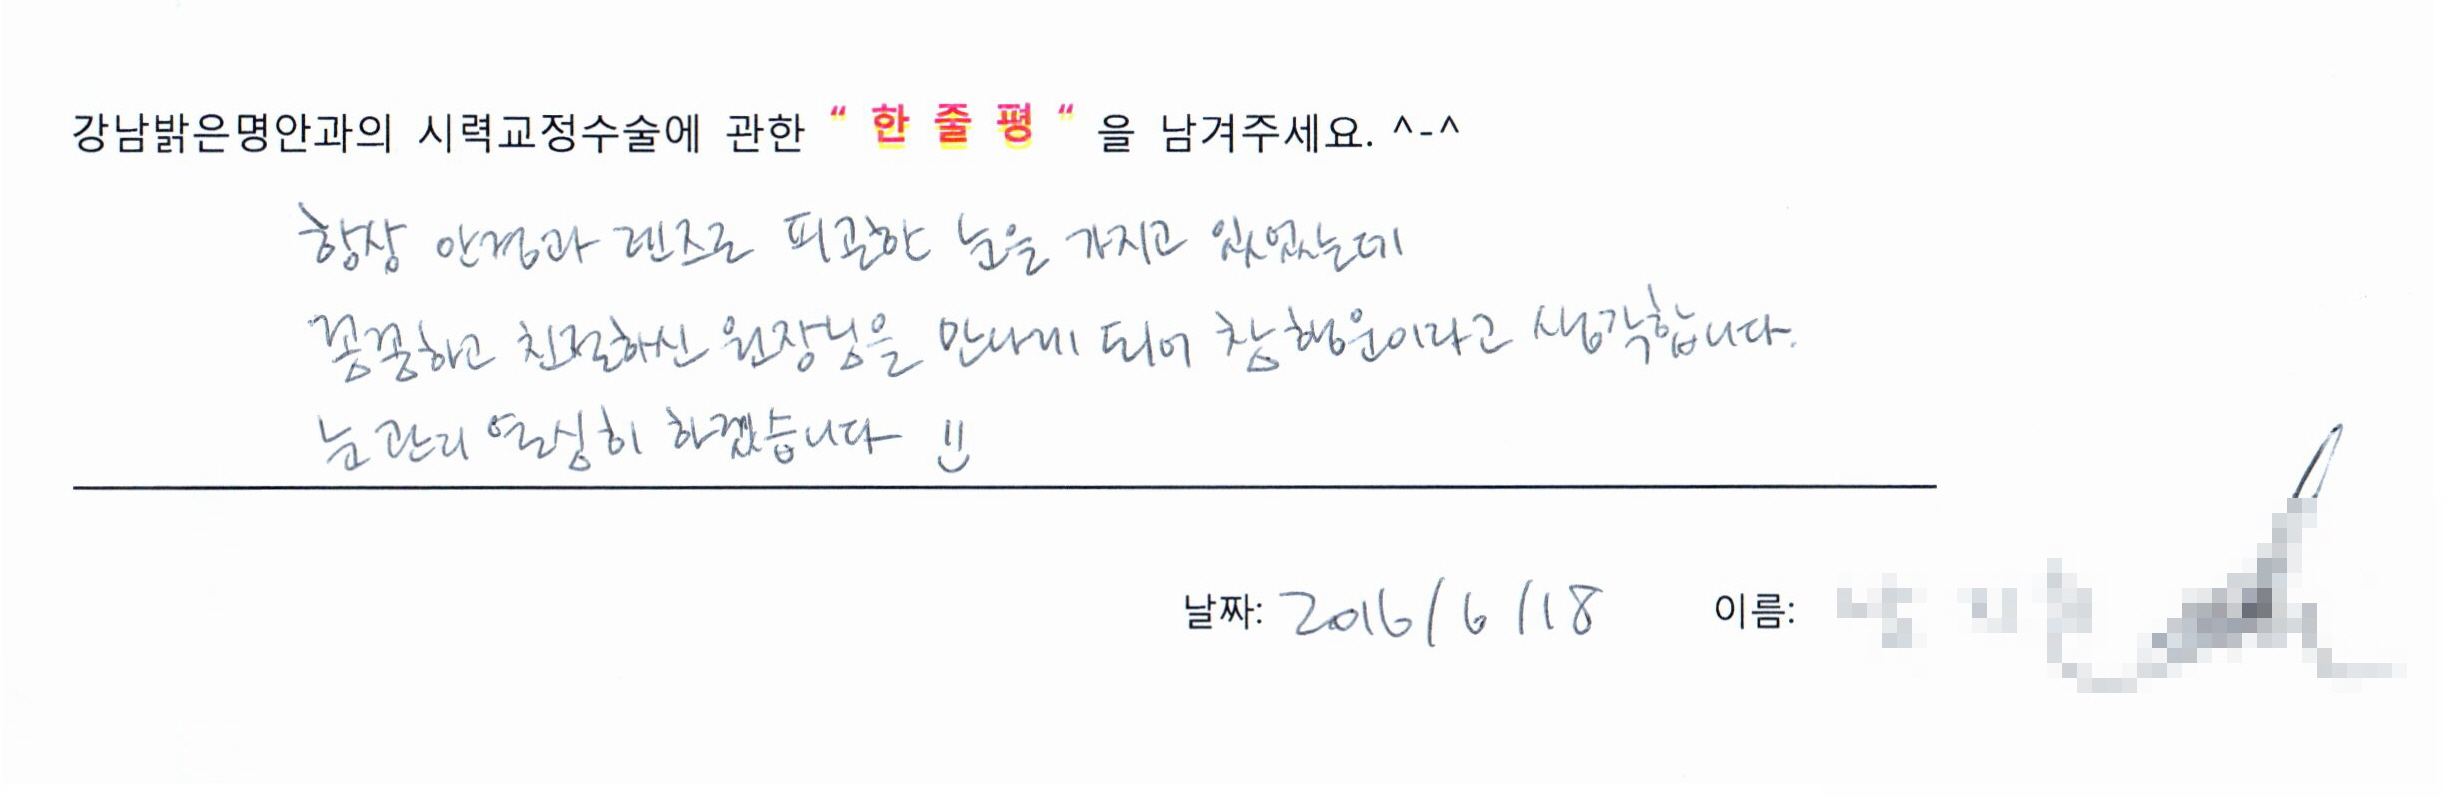 강남밝은명안과의 시력교정수술에 관한 “ 한 줄 평 “ 을 남겨주세요. ^-^
항상 안경과 렌즈로 피곤한 눈을 가지고 있었는데
꼼꼼하고 친절하신 원장님을 만나게 되어 참 행운이라고 생각합니다.
눈 관리 열심히 하겠습니다 :)
날짜: 2016/6/18 이름: